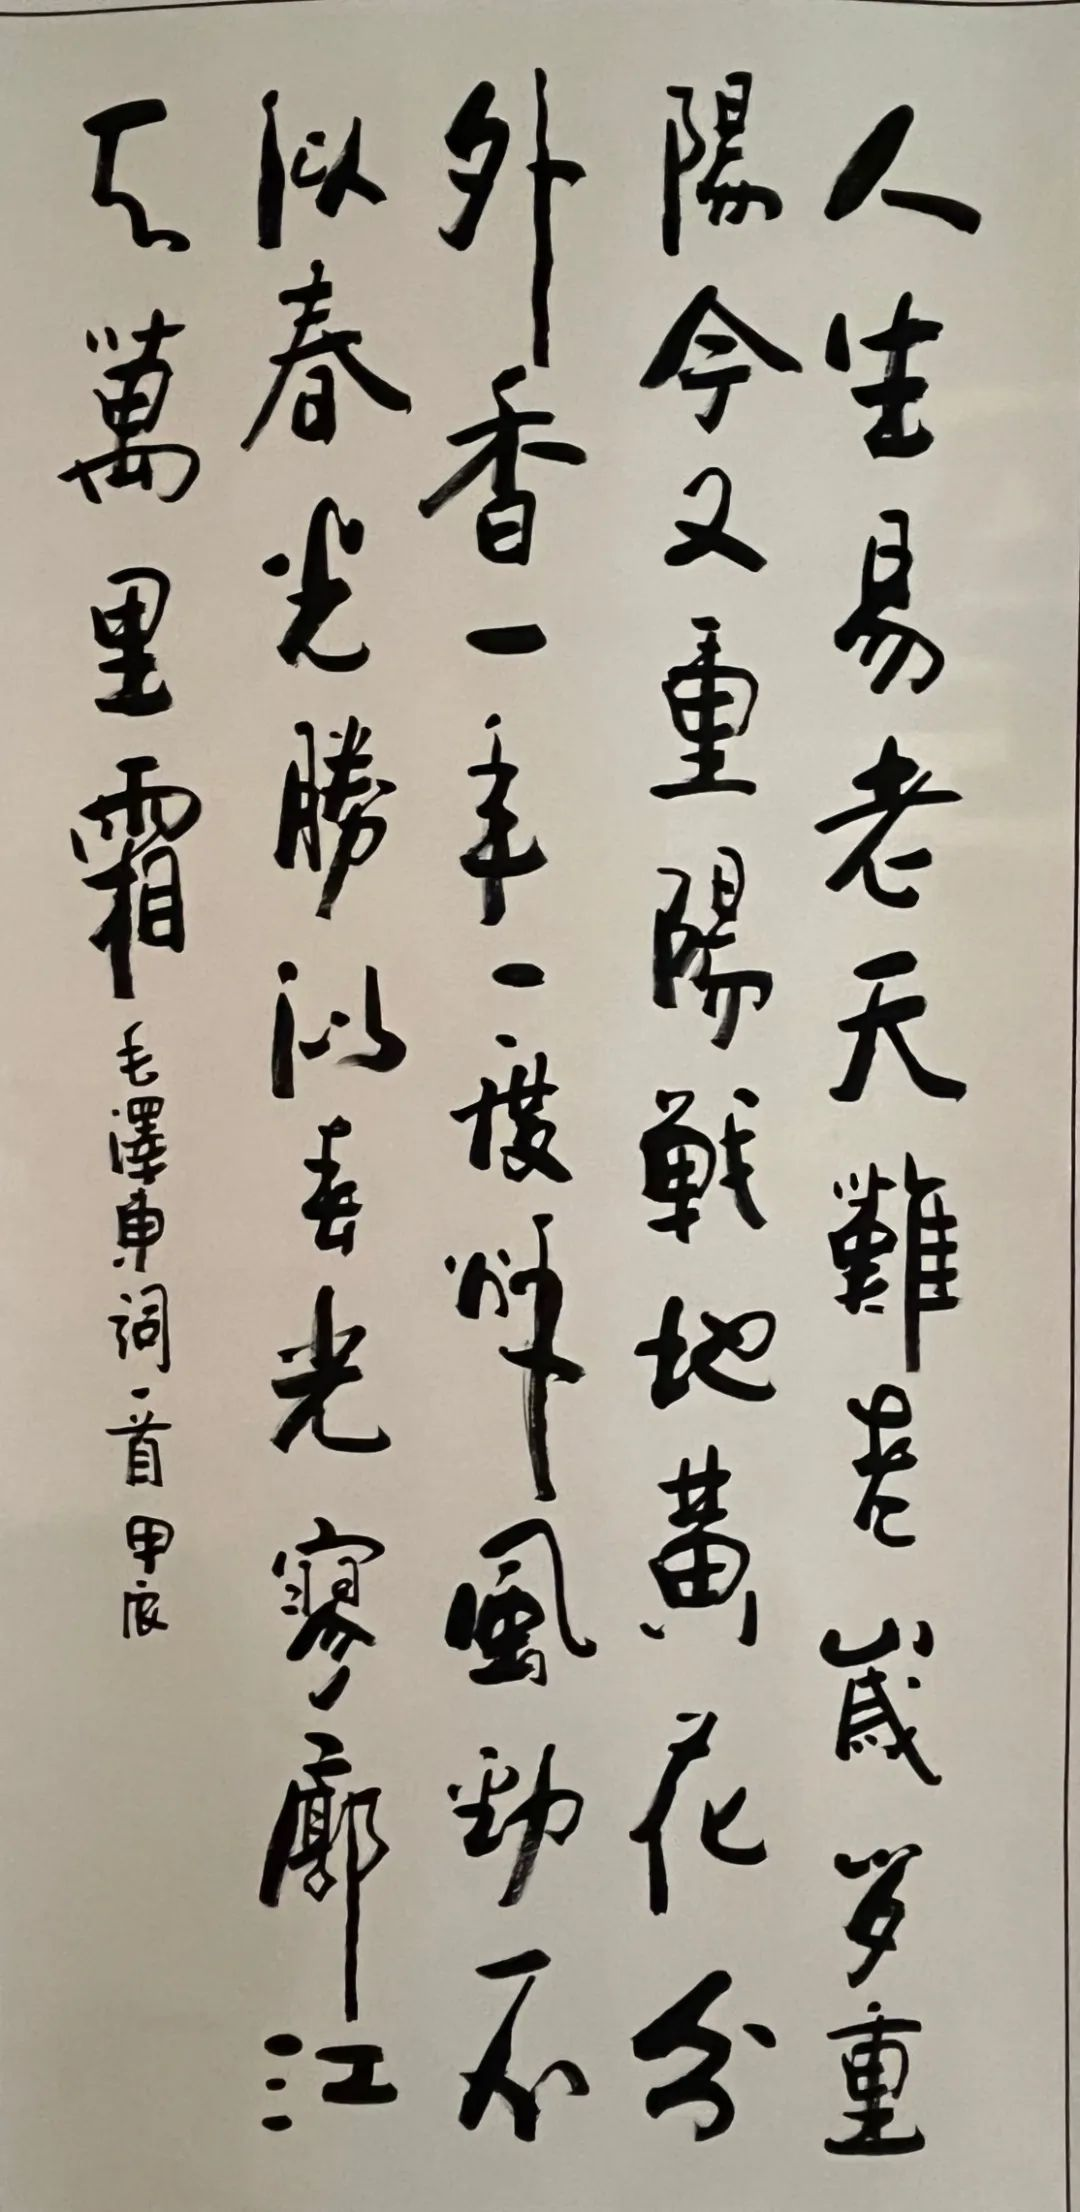 人生易老天難老歲歲重
陽今又重陽戰地黃花分
外香一年一度秋風勁不
似春光勝似春光寥廓江
天萬里霜
毛澤東詞一首甲辰